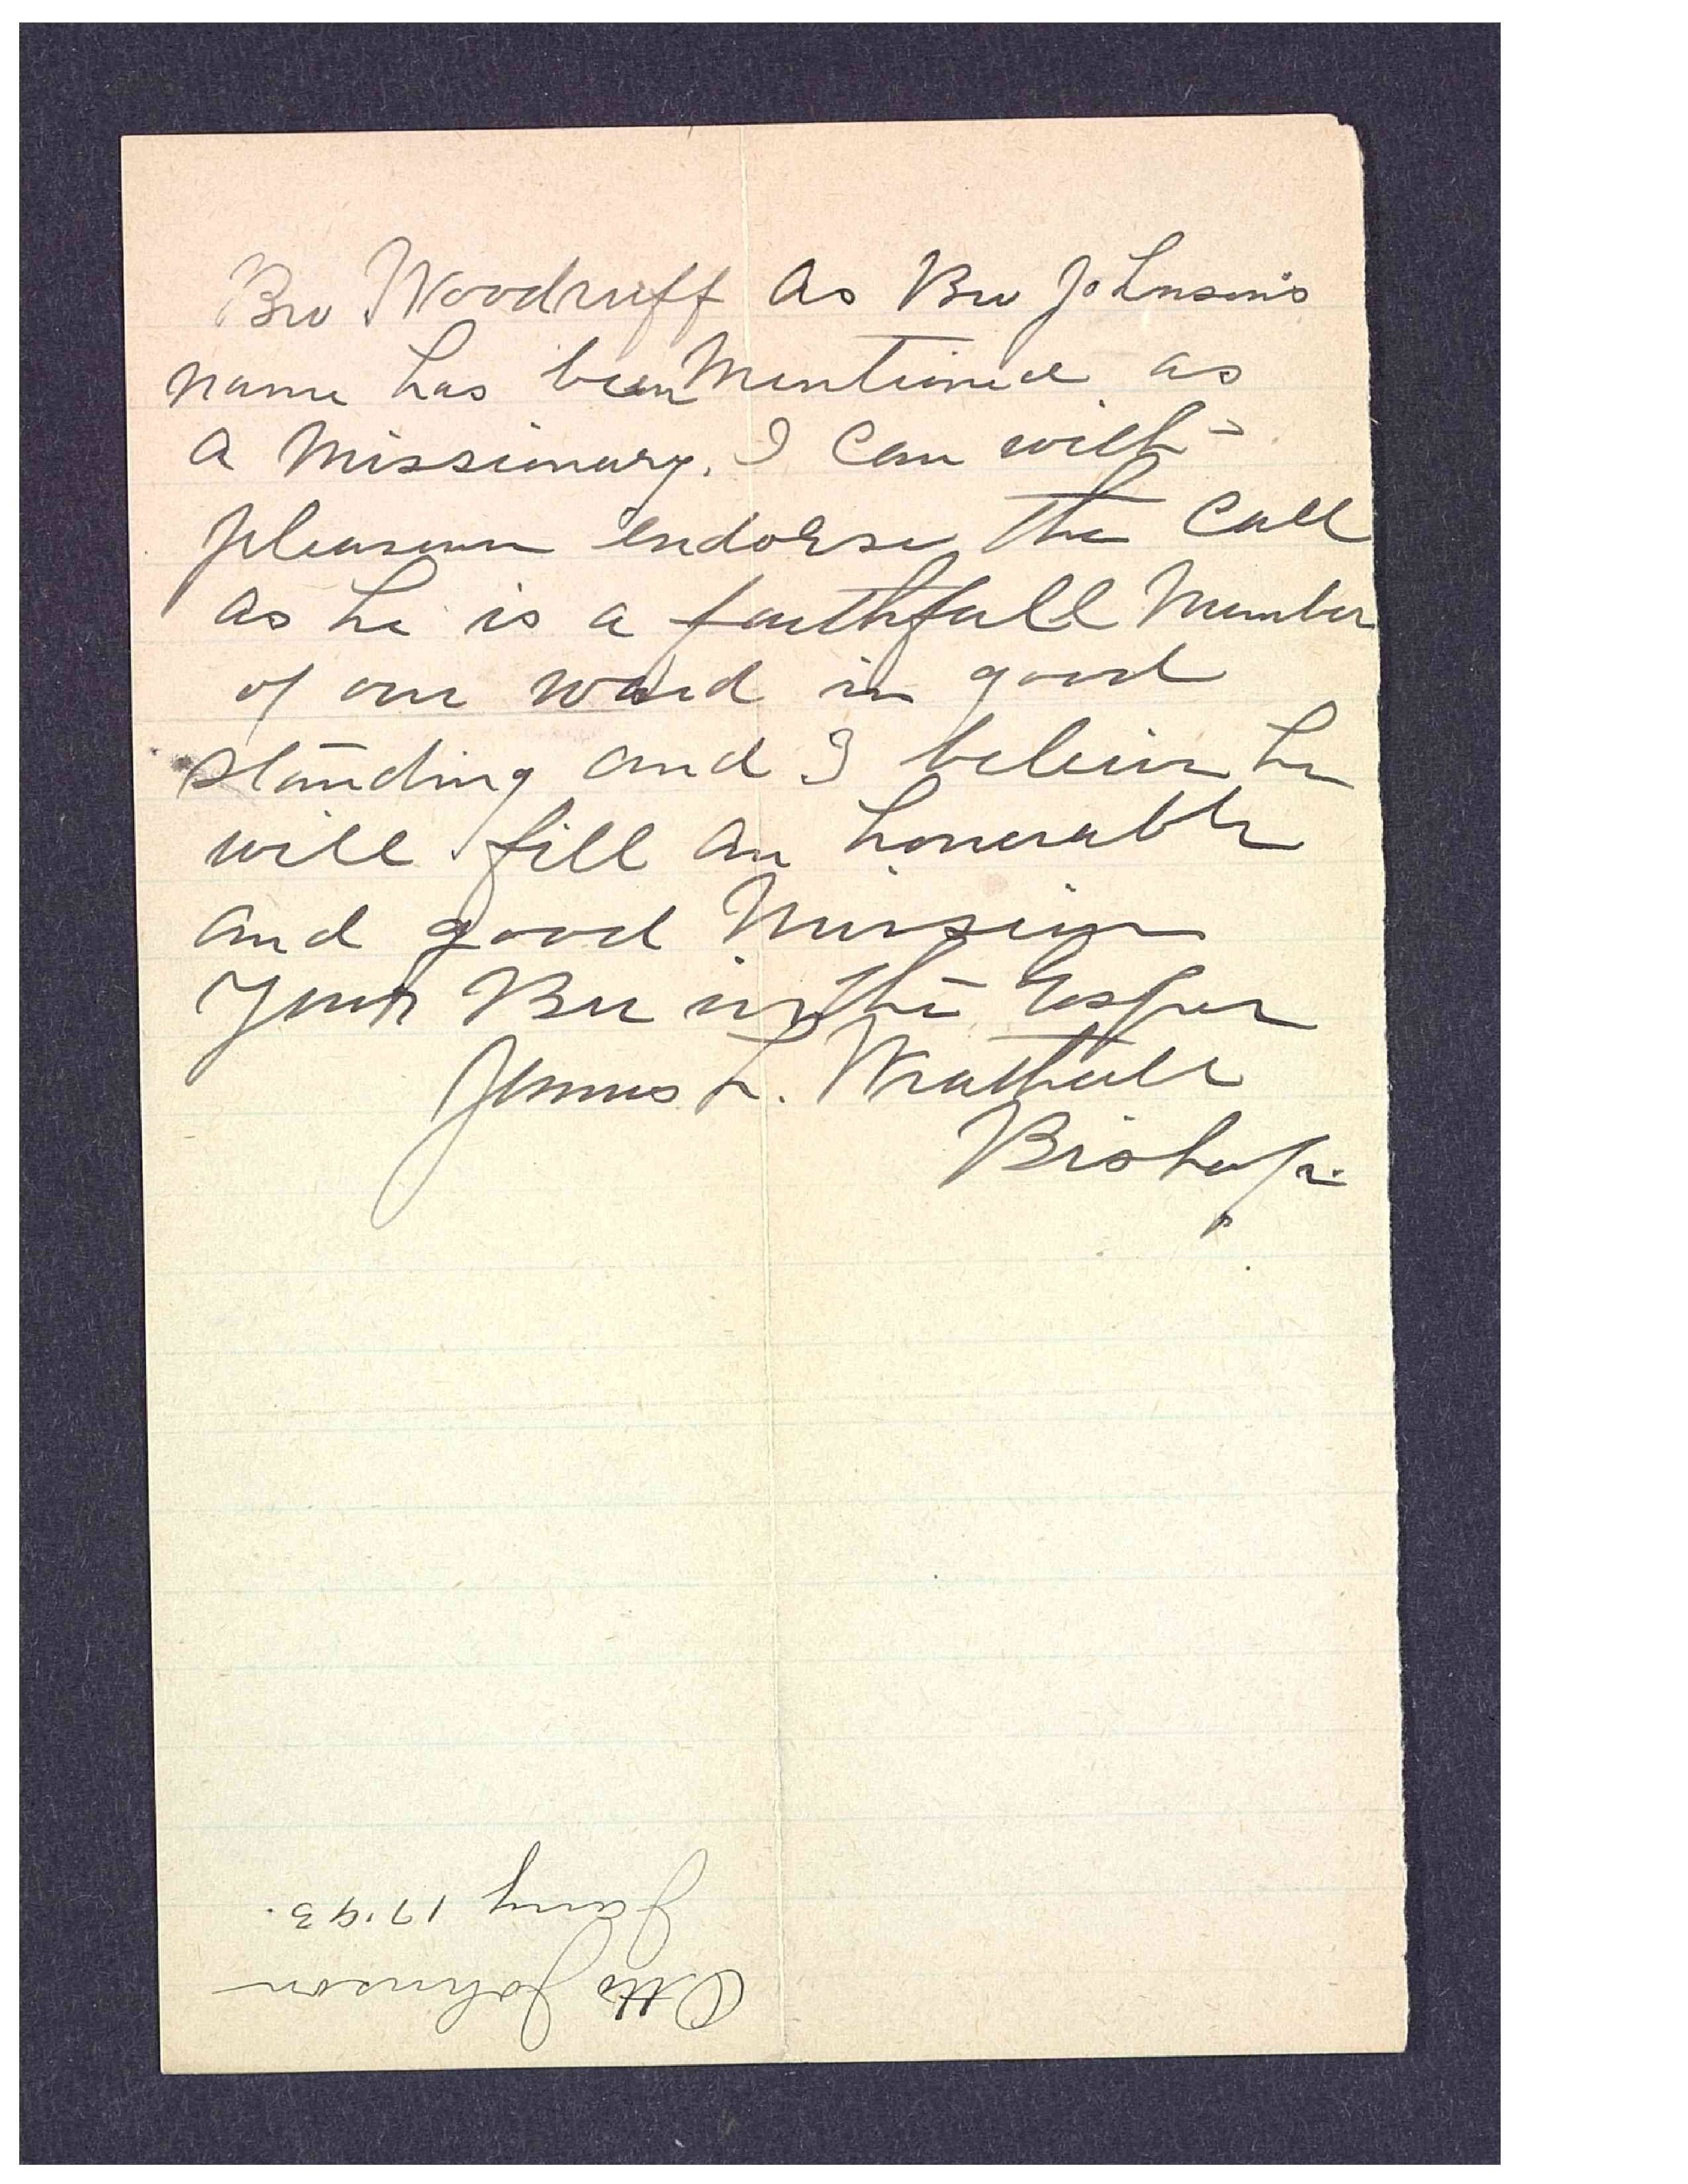 Bro Woodruff as Bro Johnson's
name has been mentioned as
a missionary. I can with
pleasure endorse the call
as he is a faithfull member
of our ward in good
standing and I beleive he
will fill an honerable
and good mission
Your Bro in the Gospel
James L. Wrathall
Bishop.
Otto Johnson
Jany 17 '93.